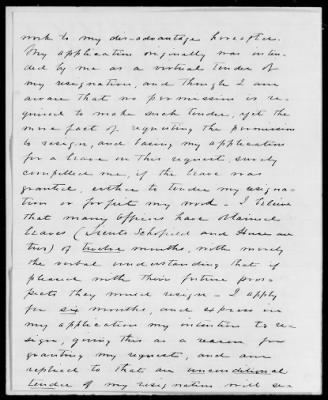 work to my dis-advantage hereafter.
My application originally was inten-
ded by me as a virtual tender of
my resignation, and though I am
aware that no permission is re-
quired to make such tender, yet the
mere fact of requesting the permission
to resign, and basing my application
for a leave on this request, surely
compelled me, if the leave was
granted, either to tender my resigna-
tion or forfeit my word - I believe
that many officers have obtained
leaves (Lieuts Schofield and
) of twelve months, with merely
the verbal understanding that if
pleased with their future pros-
pects they would resign - I apply
for six months, and express in
my application my intention to re-
sign, giving this as a reason for
granting my request, and am
replied to that an unconditional
tender of my resignation will se-